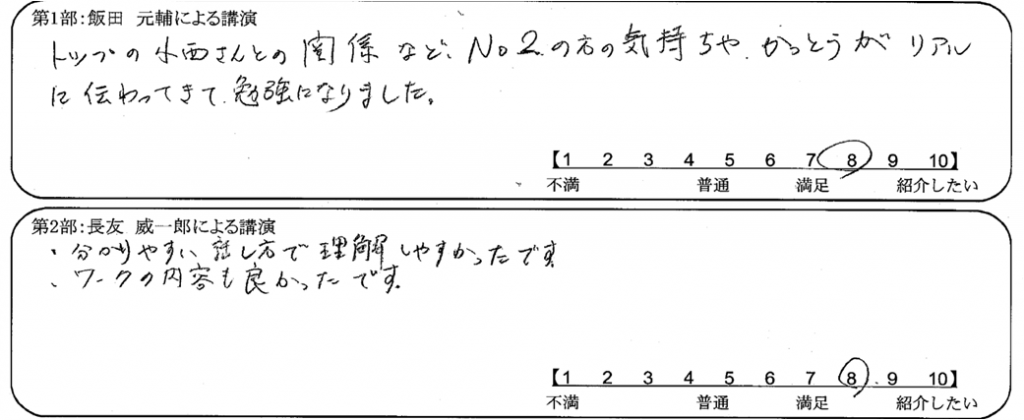 第1部:飯田 元輔による講演
トップの小西さんとの関係など、No2.の方の気持ちや、かっとうが リアル
に伝わってきて、勉強になりました。
【1 2 3 4 5 6 7 8 9 10】
不満 普通 満足 紹介したい
第2部:長友 威一郎による講演
・分かりやすい話し方で理解しやすかったです
・ワークの内容も良かったです。
【1 2 3 4 5 6 7 8 9 10】
不満 普通 満足 紹介したい